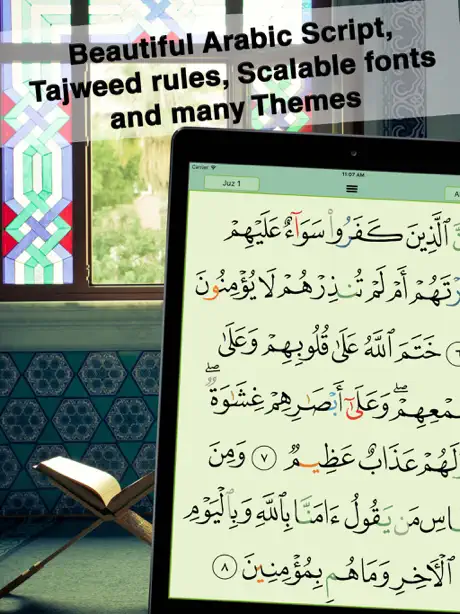 Beautiful Arabic Script,
Tajweed rules, Scalable fonts
and many Themes
Carrier
11:07 AM
Juz 1
ٱلَّذِينَ كَفَرُوا۟ سَوَآءٌ عَلَيْهِمْ
أَمْ لَمْ تُنذِرْهُمْ لَا يُؤْمِنُونَ
خَتَمَ ٱللَّهُ عَلَىٰ قُلُوبِهِمْ وَعَلَىٰ
وَعَلَىٰٓ أَبْصَٰرِهِمْ غِشَٰوَةٌ ۖ
عَذَابٌ عَظِيمٌ ٧ وَمِنَ
مَن يَقُولُ ءَامَنَّا بِٱللَّهِ وَبِٱلْيَوْمِ
ٱلْءَاخِرِ وَمَا هُم بِمُؤْمِنِينَ ٨